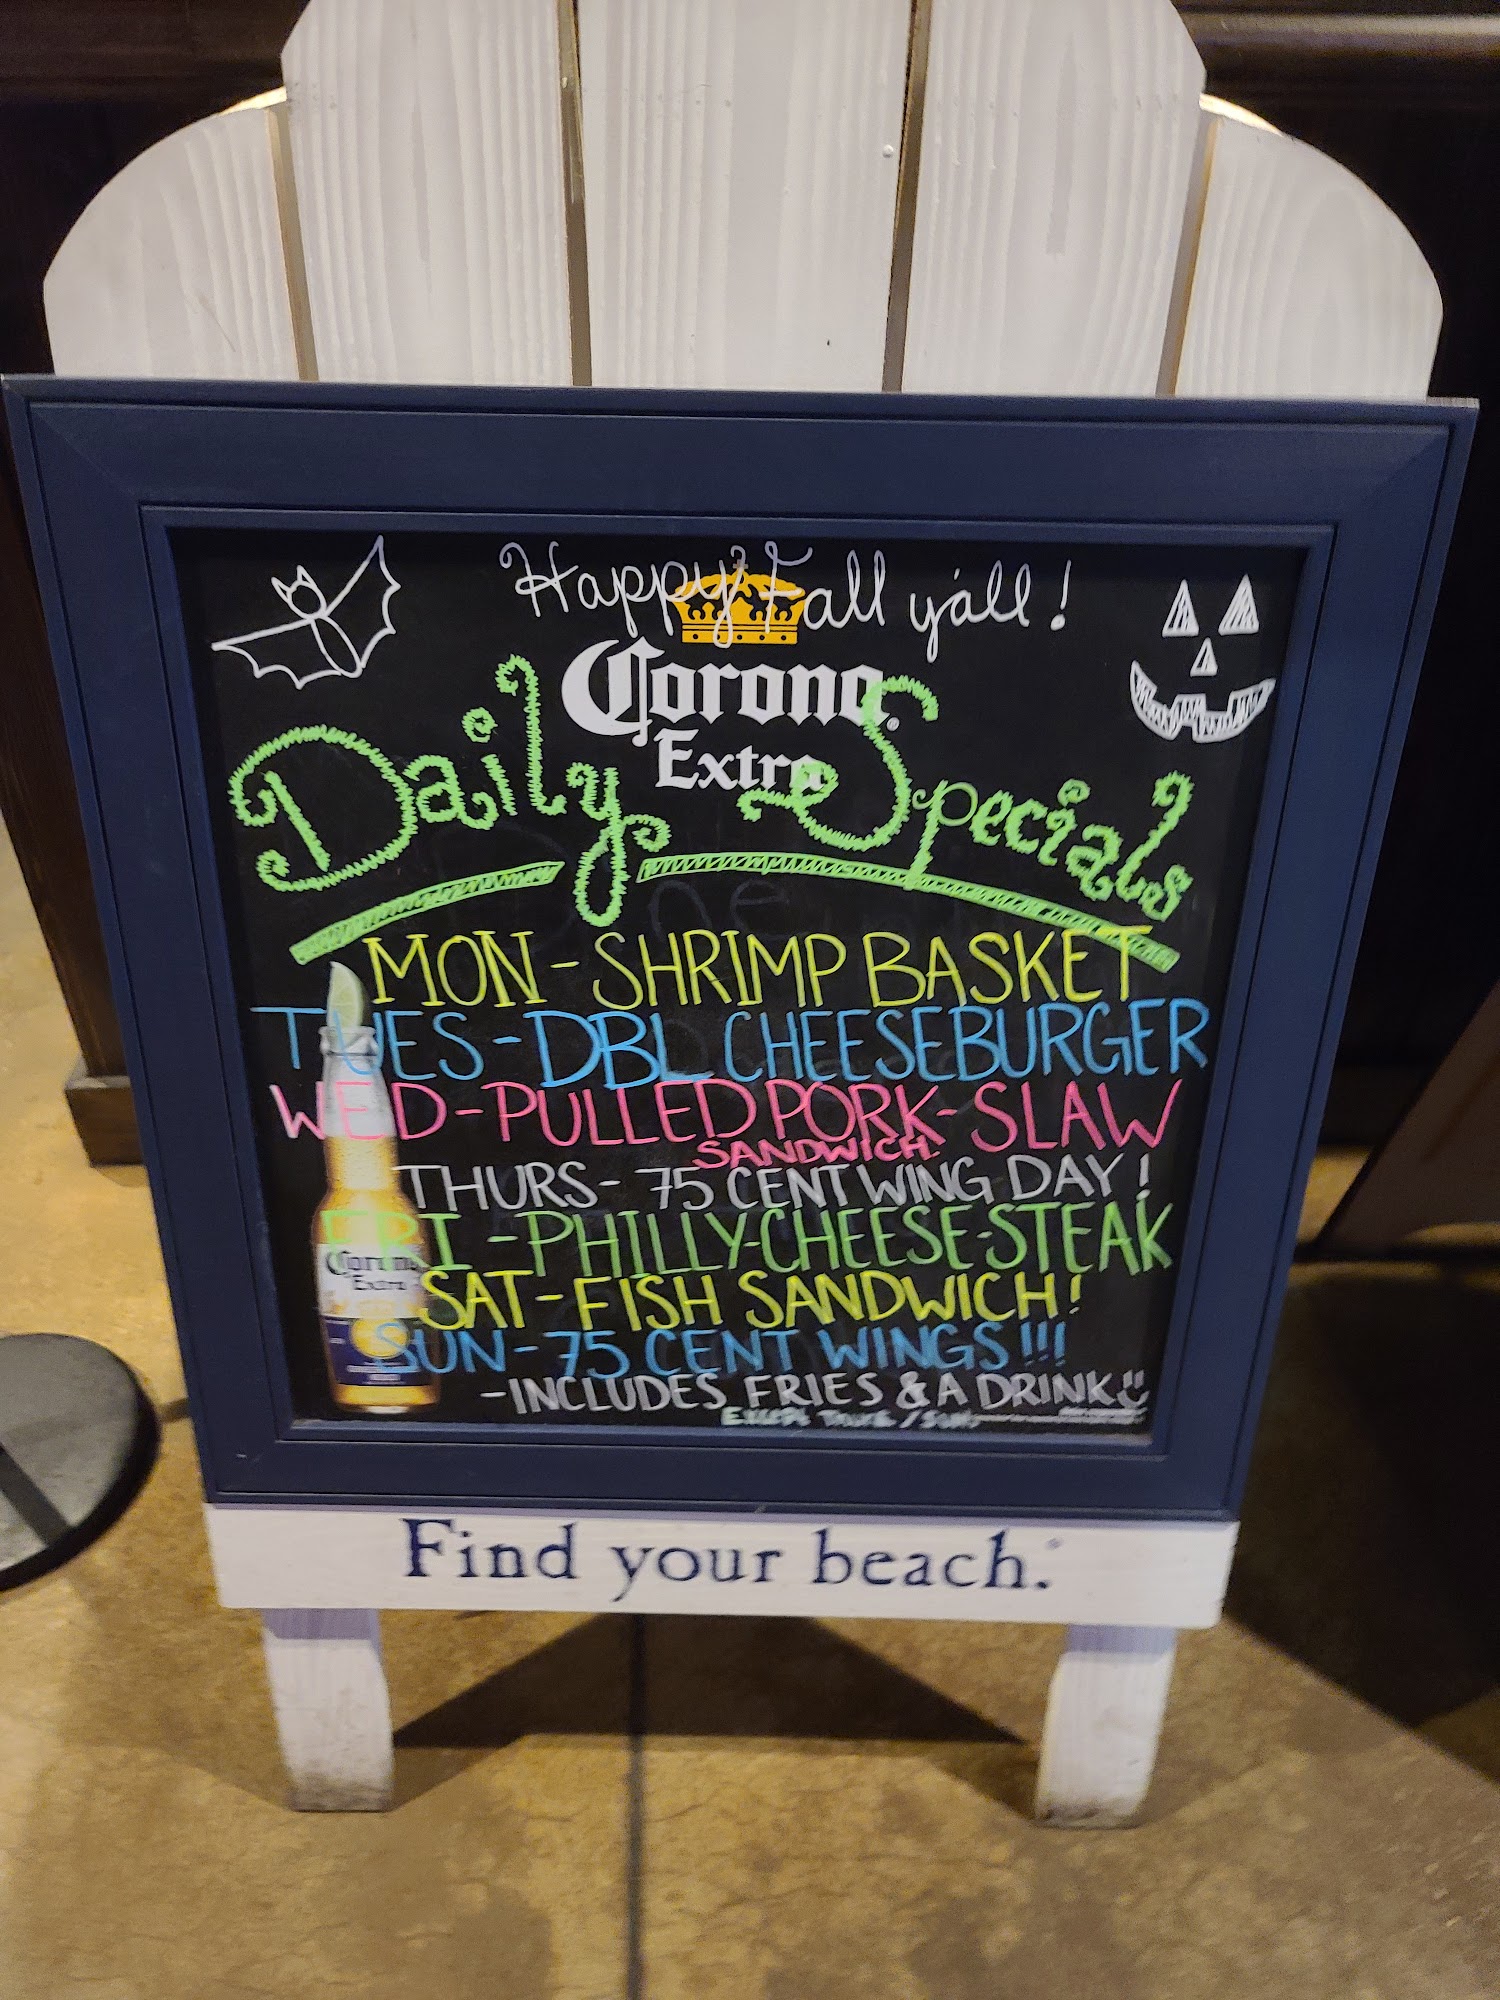 Happy Fall y'all!
Corona
Extra
Daily Specials
MON - SHRIMP BASKET
TUES - DBL CHEESEBURGER
WED - PULLED PORK - SLAW
SANDWICH.
THURS - 75 CENT WING DAY!
FRI - PHILLY-CHEESE-STEAK
Corona
Extra
SAT - FISH SANDWICH!
SUN - 75 CENT WINGS!!!
- INCLUDES FRIES & A DRINK
EXCEPT THUR / SUN
Find your beach.